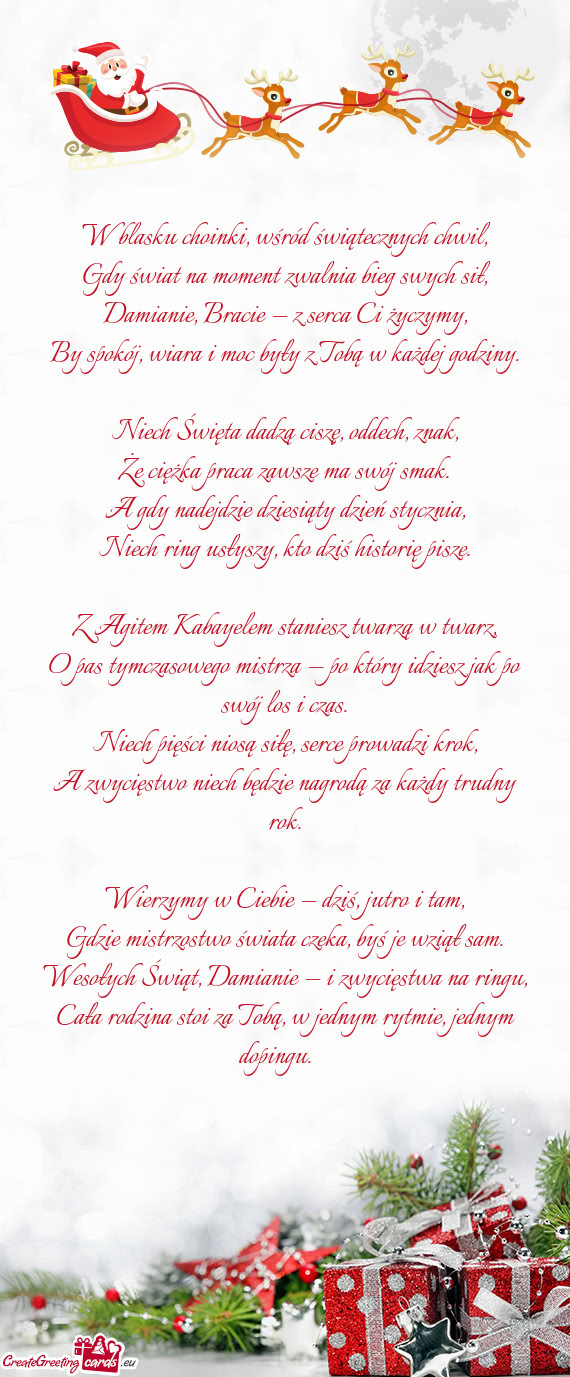 W blasku choinki, wśród świątecznych chwil,
Gdy świat na moment zwalnia bieg swych sił,
Damianie, Bracie – z serca Ci życzymy,
By spokój, wiara i moc były z Tobą w każdej godziny.
Niech Święta dadzą ciszę, oddech, znak,
Że ciężka praca zawsze ma swój smak.
A gdy nadejdzie dziesiąty dzień stycznia,
Niech ring usłyszy, kto dziś historię pisze.
Z Agitem Kabayelem staniesz twarzą w twarz,
O pas tymczasowego mistrza – po który idziesz jak po
swój los i czas.
Niech pięści niosą siłę, serce prowadzi krok,
A zwycięstwo niech będzie nagrodą za każdy trudny
rok.
Wierzymy w Ciebie – dziś, jutro i tam,
Gdzie mistrzostwo świata czeka, byś je wziął sam.
Wesołych Świąt, Damianie – i zwycięstwa na ringu,
Cała rodzina stoi za Tobą, w jednym rytmie, jednym
dopingu.
CreateGreeting cards .eu